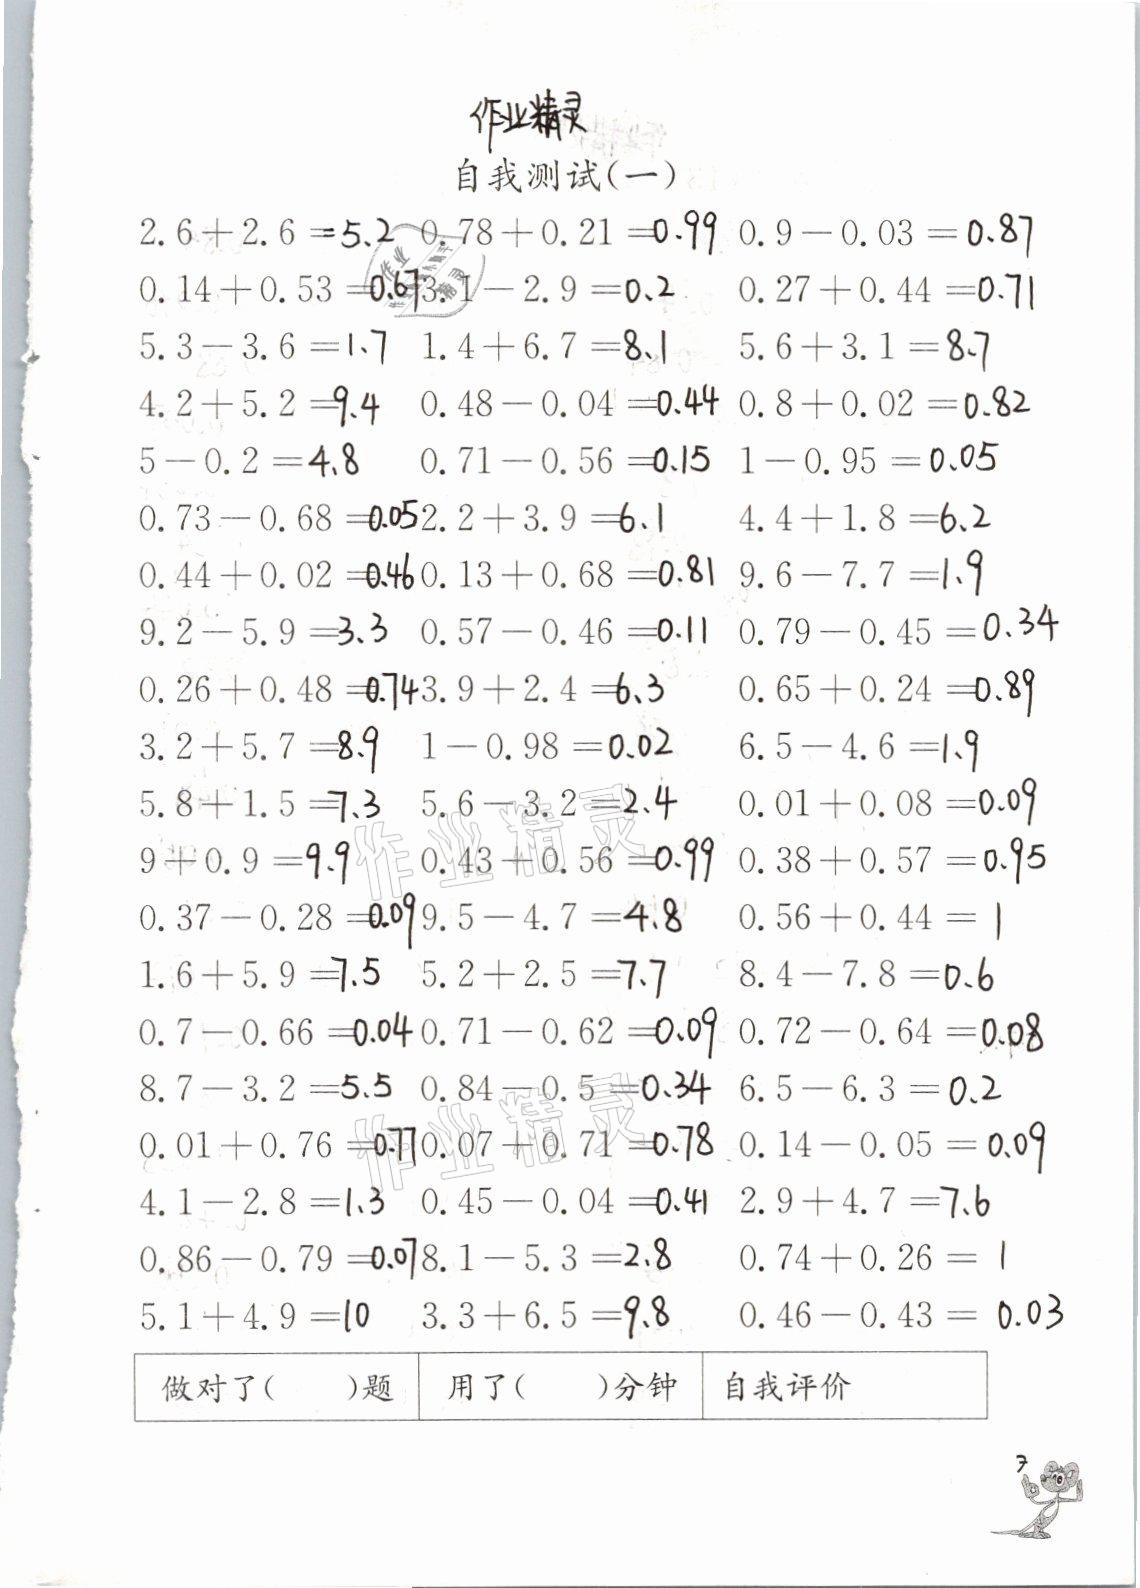 作业精灵
自我测试(一)
2.6+2.6=5.2 0.78+0.21=0.99 0.9-0.03=0.87
0.14+0.53=0.67 3.1-2.9=0.2 0.27+0.44=0.71
5.3-3.6=1.7 1.4+6.7=8.1 5.6+3.1=8.7
4.2+5.2=9.4 0.48-0.04=0.44 0.8+0.02=0.82
5-0.2=4.8 0.71-0.56=0.15 1-0.95=0.05
0.73-0.68=0.05 2.2+3.9=6.1 4.4+1.8=6.2
0.44+0.02=0.46 0.13+0.68=0.81 9.6-7.7=1.9
9.2-5.9=3.3 0.57-0.46=0.11 0.79-0.45=0.34
0.26+0.48=0.74 3.9+2.4=6.3 0.65+0.24=0.89
3.2+5.7=8.9 1-0.98=0.02 6.5-4.6=1.9
5.8+1.5=7.3 5.6-3.2=2.4 0.01+0.08=0.09
9+0.9=9.9 0.43+0.56=0.99 0.38+0.57=0.95
作业精灵
0.37-0.28=0.09 9.5-4.7=4.8 0.56+0.44=1
1.6+5.9=7.5 5.2+2.5=7.7 8.4-7.8=0.6
0.7-0.66=0.04 0.71-0.62=0.09 0.72-0.64=0.08
8.7-3.2=5.5 0.84-0.5=0.34 6.5-6.3=0.2
作业精灵
0.01+0.76=0.77 0.07+0.71=0.78 0.14-0.05=0.09
4.1-2.8=1.3 0.45-0.04=0.41 2.9+4.7=7.6
0.86-0.79=0.07 8.1-5.3=2.8 0.74+0.26=1
5.1+4.9=10 3.3+6.5=9.8 0.46-0.43=0.03
做对了(    )题 用了(    )分钟 自我评价
7